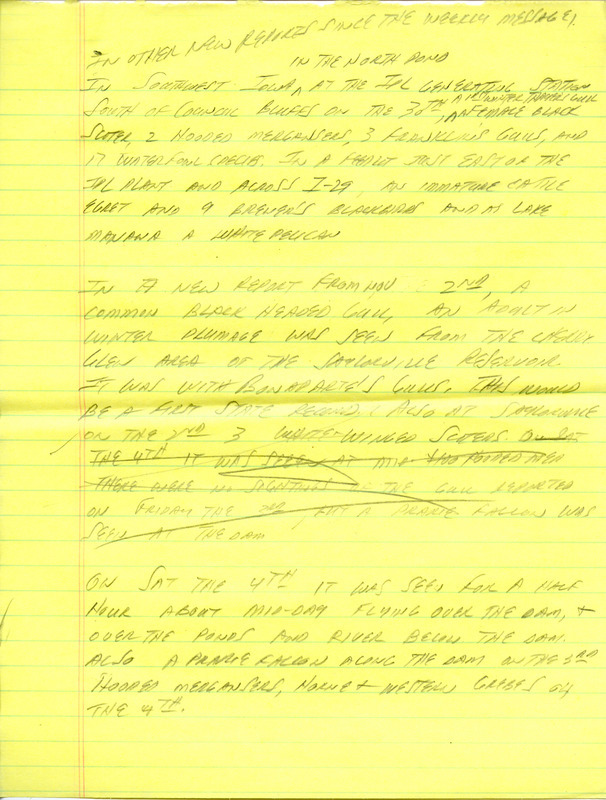 IN OTHER NEW REPORTS SINCE THE WEEKLY MESSAGE,
IN THE NORTH POND
IN SOUTHWEST IOWA ^ AT THE IPL GENERATING STATION
A 1ST WINTER THAYER'S GULL
SOUTH OF COUNCIL BLUFFS ON THE 30TH, ^ A FEMALE BLACK
SCOTER, 2 HOODED MERGANSERS, 3 FRANKLIN'S GULLS, AND
17 WATERFOWL SPECIES. IN A FEEDLOT JUST EAST OF THE
IPL PLANT AND ACROSS I-29, AN IMMATURE CATTLE
EGRET AND 9 BREWER'S BLACKBIRDS AND AT LAKE
MANAWA A WHITE PELICAN
IN A NEW REPORT FROM NOV 2ND, A
COMMON BLACK HEADED GULL, AN ADULT IN
WINTER PLUMAGE WAS SEEN FROM THE CHERRY
GLEN AREA OF THE SAYLORVILLE RESERVOIR.
IT WAS WITH BONAPARTE'S GULLS. THIS WOULD
BE A FIRST STATE RECORD. ALSO AT SAYLORVILLE
ON THE 2ND 3 WHITE-WINGED SCOTERS. ON SAT
THE 4TH IT WAS SEEN AT MID
THERE WERE NO SIGHTINGS OF THE GULL REPORTED
ON FRIDAY THE 3RD, BUT A PRAIRIE FALCON WAS
SEEN AT THE DAM
ON SAT THE 4TH IT WAS SEEN FOR A HALF
HOUR ABOUT MID-DAY FLYING OVER THE DAM, +
OVER THE PONDS AND RIVER BELOW THE DAM.
ALSO A PRAIRIE FALCON ALONG THE DAM ON THE 3RD
HOODED MERGANSERS, HORNED + WESTERN GREBES ON
THE 4TH.